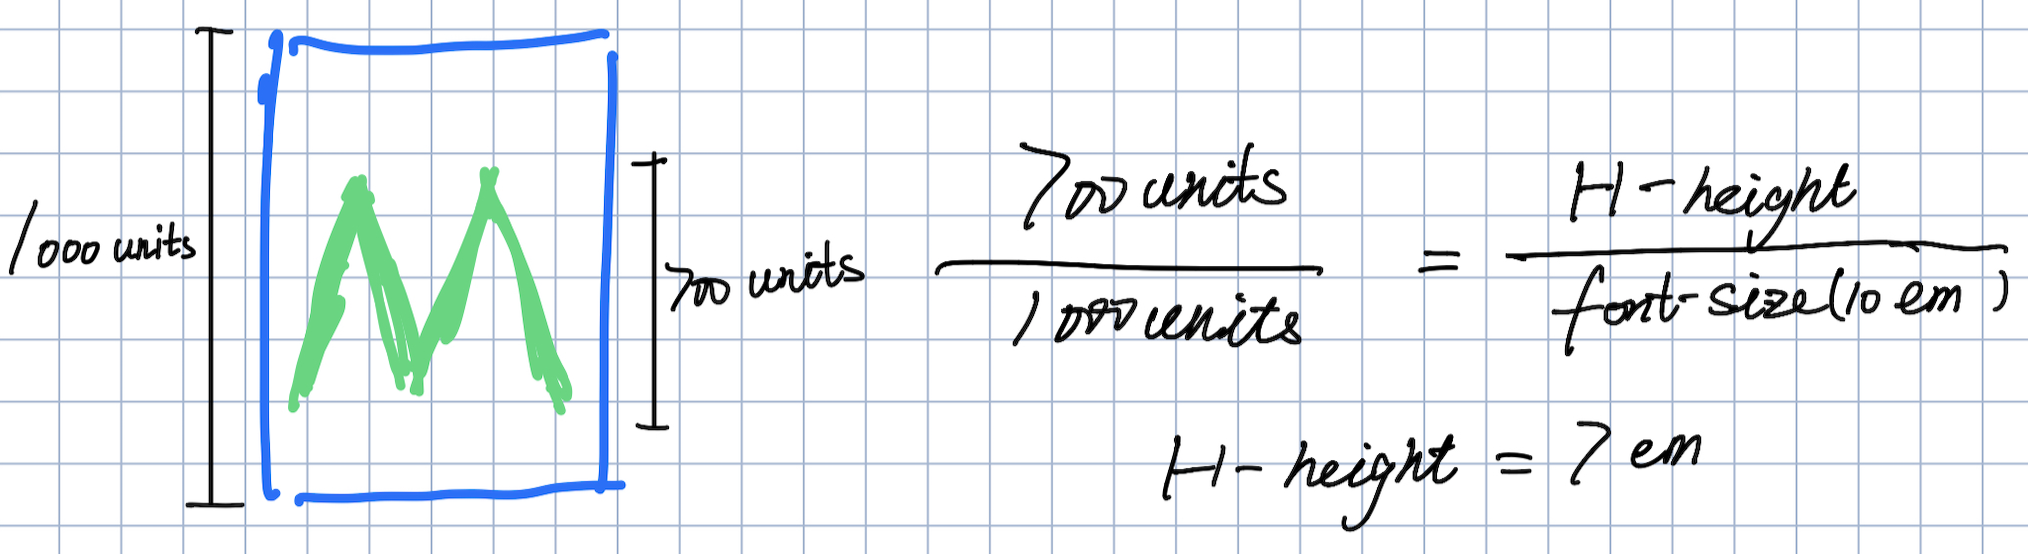 1000 units
M
700 units
700 units
1000 units
=
H-height
font-size(10 em)
H-height = 7 em